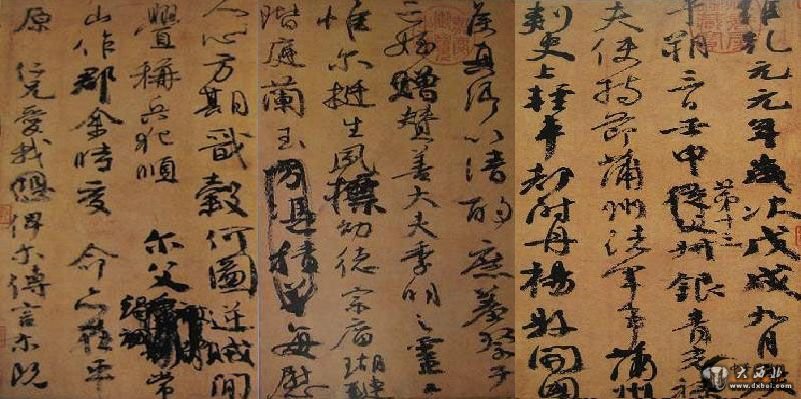 維乾元元年歲次戊戌九月庚
午朔三日壬申第十三從父銀青光祿
夫使持節蒲州諸軍事蒲州
刺史上輕車都尉丹楊縣開國
侯真卿以清酌庶羞祭于
亡姪贈贊善大夫季明之靈曰
惟爾挺生夙標幼德宗廟瑚璉
階庭蘭玉方憑積善每慰
人心方期戩穀何圖逆賊閒
釁稱兵犯順爾父竭誠常
山作郡余時受命亦在平
原仁兄愛我恐俾爾傳言爾既
大西北
www.dxbei.com